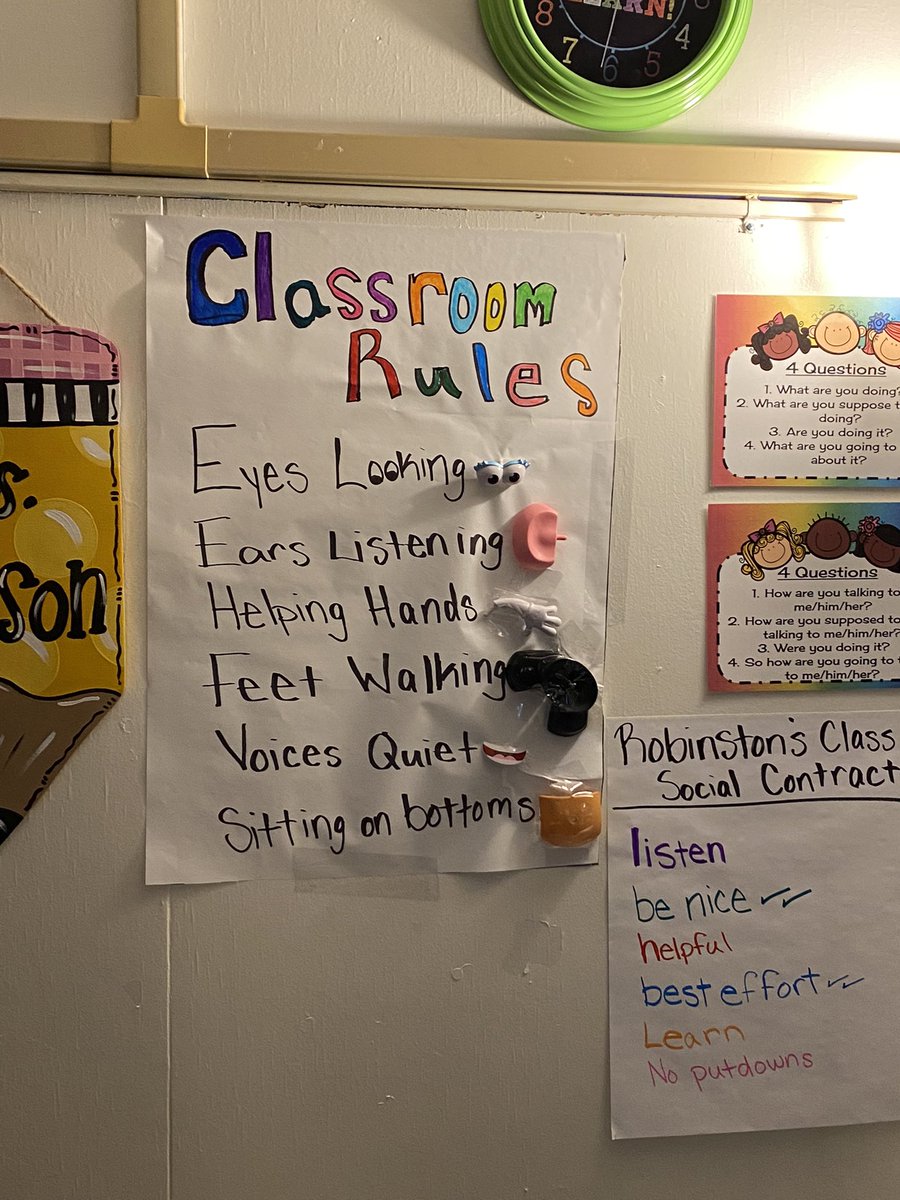 LEARN!
8
7
6
5
4
Classroom
Rules
Eyes Looking
Ears Listening
Helping Hands
Feet Walking
Voices Quiet
Sitting on bottoms
s.
son
4 Questions
1. What are you doing?
2. What are you suppose t
doing?
3. Are you doing it?
4. What are you going to
about it?
4 Questions
1. How are you talking to
me/him/her?
2. How are you supposed to
talking to me/him/her?
3. Were you doing it?
4. So how are you going to t
to me/him/her?
Robinston's Class
Social Contract
listen
be nice ✓✓
helpful
best effort ✓✓
Learn
No putdowns